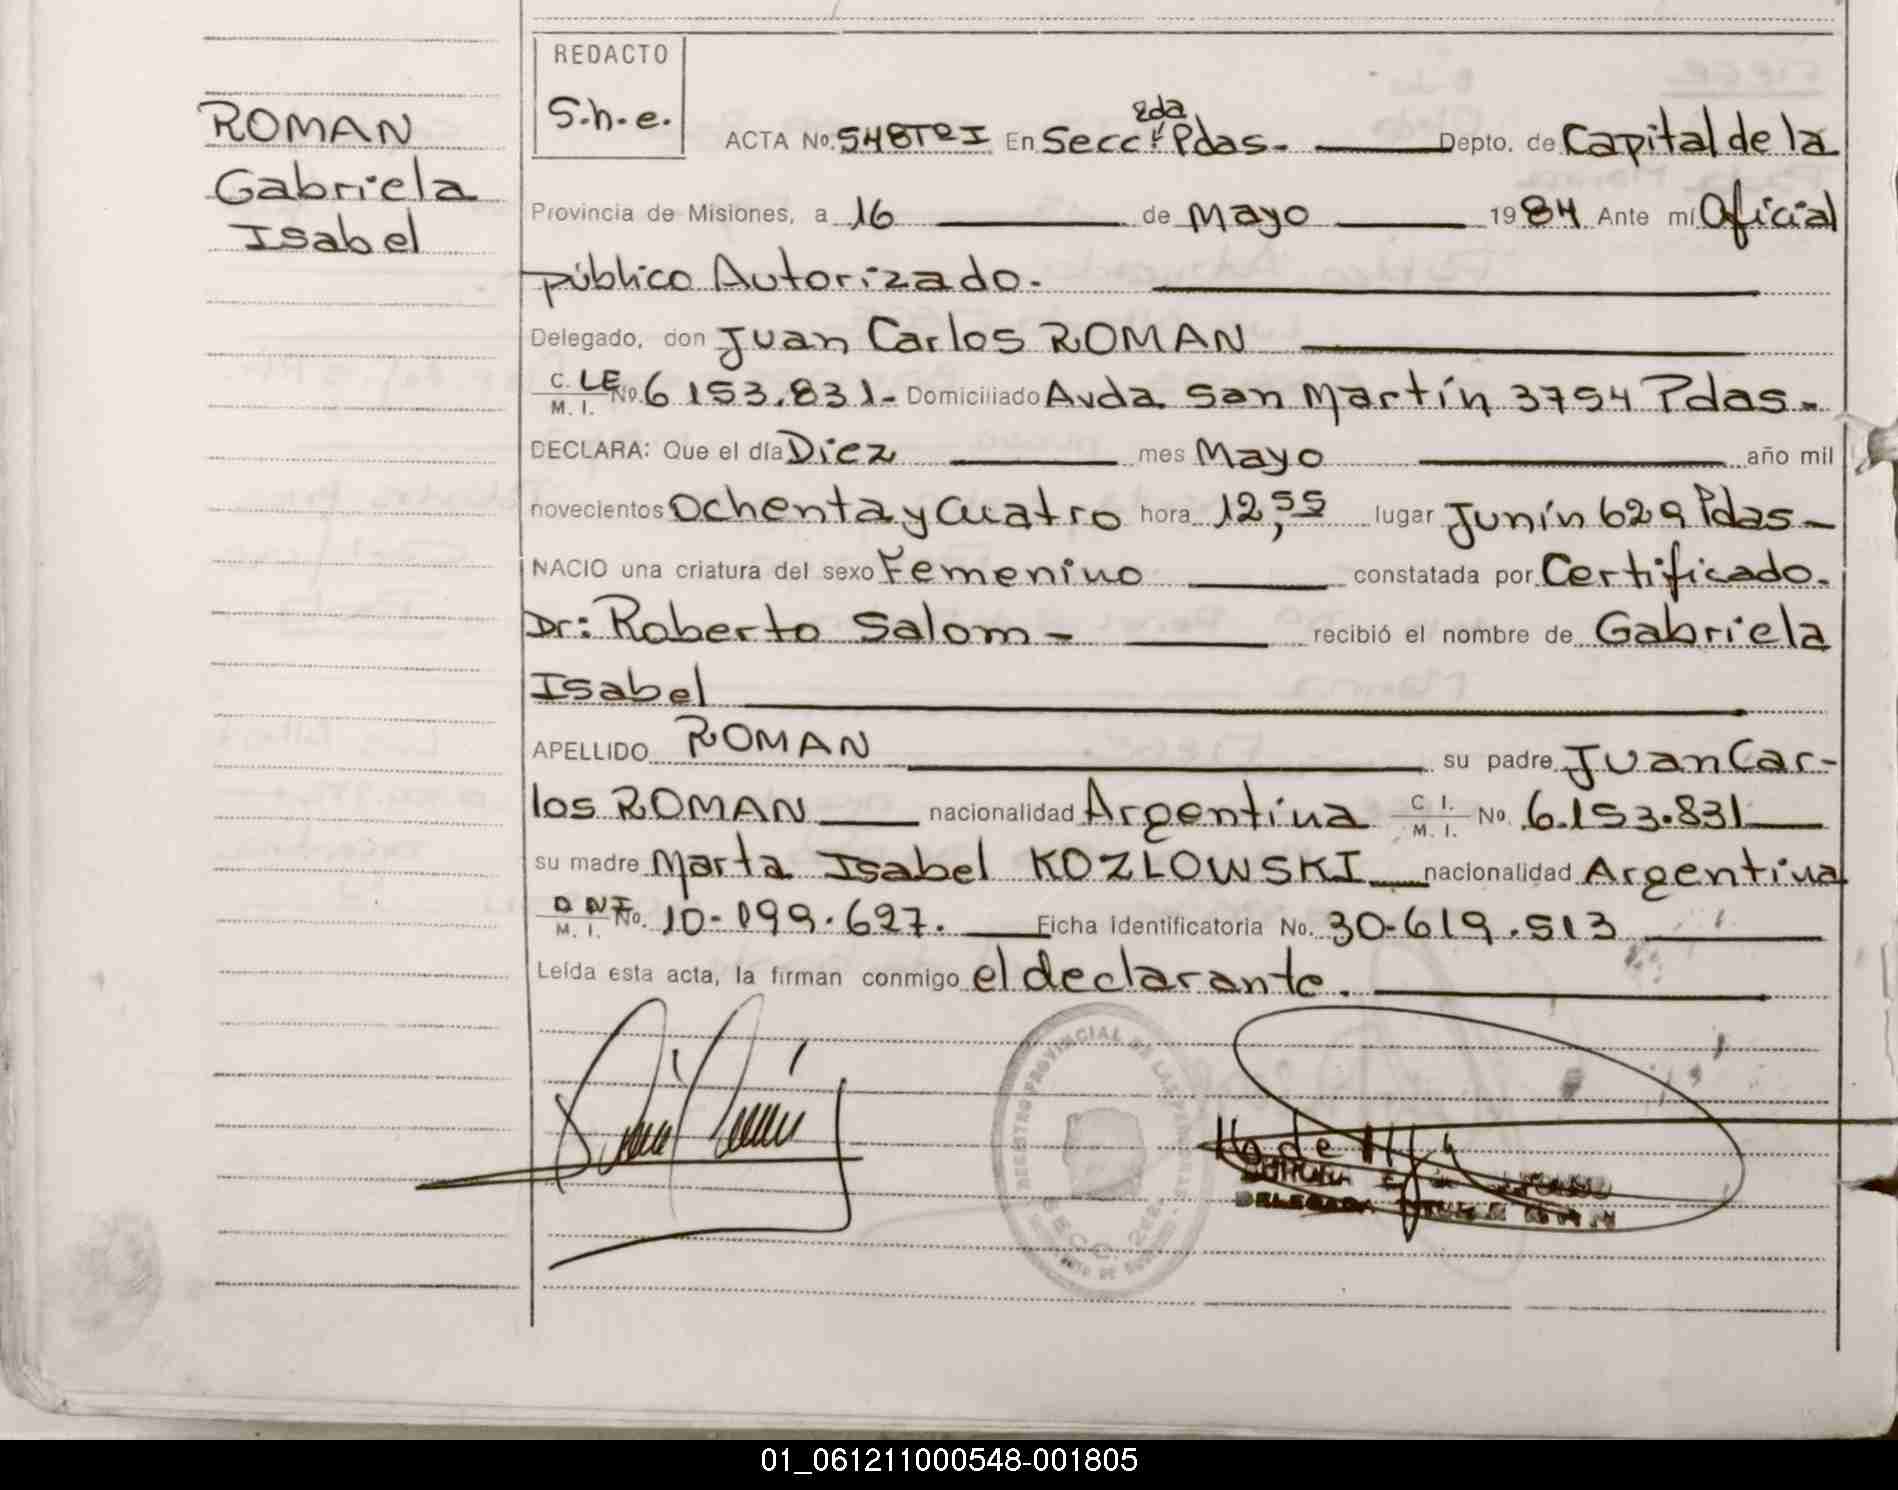 REDACTO
S.h.e.
ROMAN
Gabriela
Isabel
ACTA No. 548TºI En Secc. 2da Pdas. Depto. de Capital de la
Provincia de Misiones, a 16 de Mayo 1984 Ante mí Oficial
público Autorizado.
Delegado, don Juan Carlos ROMAN
C. LE No. 6 153.831.- Domiciliado Avda San Martín 3754 Pdas.
M. I.
DECLARA: Que el día Diez mes Mayo año mil
novecientos Ochenta y Cuatro hora 12,55 lugar Junín 629 Pdas.
NACIO una criatura del sexo Femenino constatada por Certificado.
Dr: Roberto Salom - recibió el nombre de Gabriela
Isabel
APELLIDO ROMAN su padre Juan Car-
los ROMAN nacionalidad Argentina C. I. M. I. No. 6.153.831
su madre Marta Isabel KOZLOWSKI nacionalidad Argentina
DNI M. I. No. 10-199.627. Ficha identificatoria No. 30-619.513
Leída esta acta, la firman conmigo el declarante.
REGISTRO PROVINCIAL DE LAS PERSONAS
SECC. 2da
DELEGADA
01_061211000548-001805